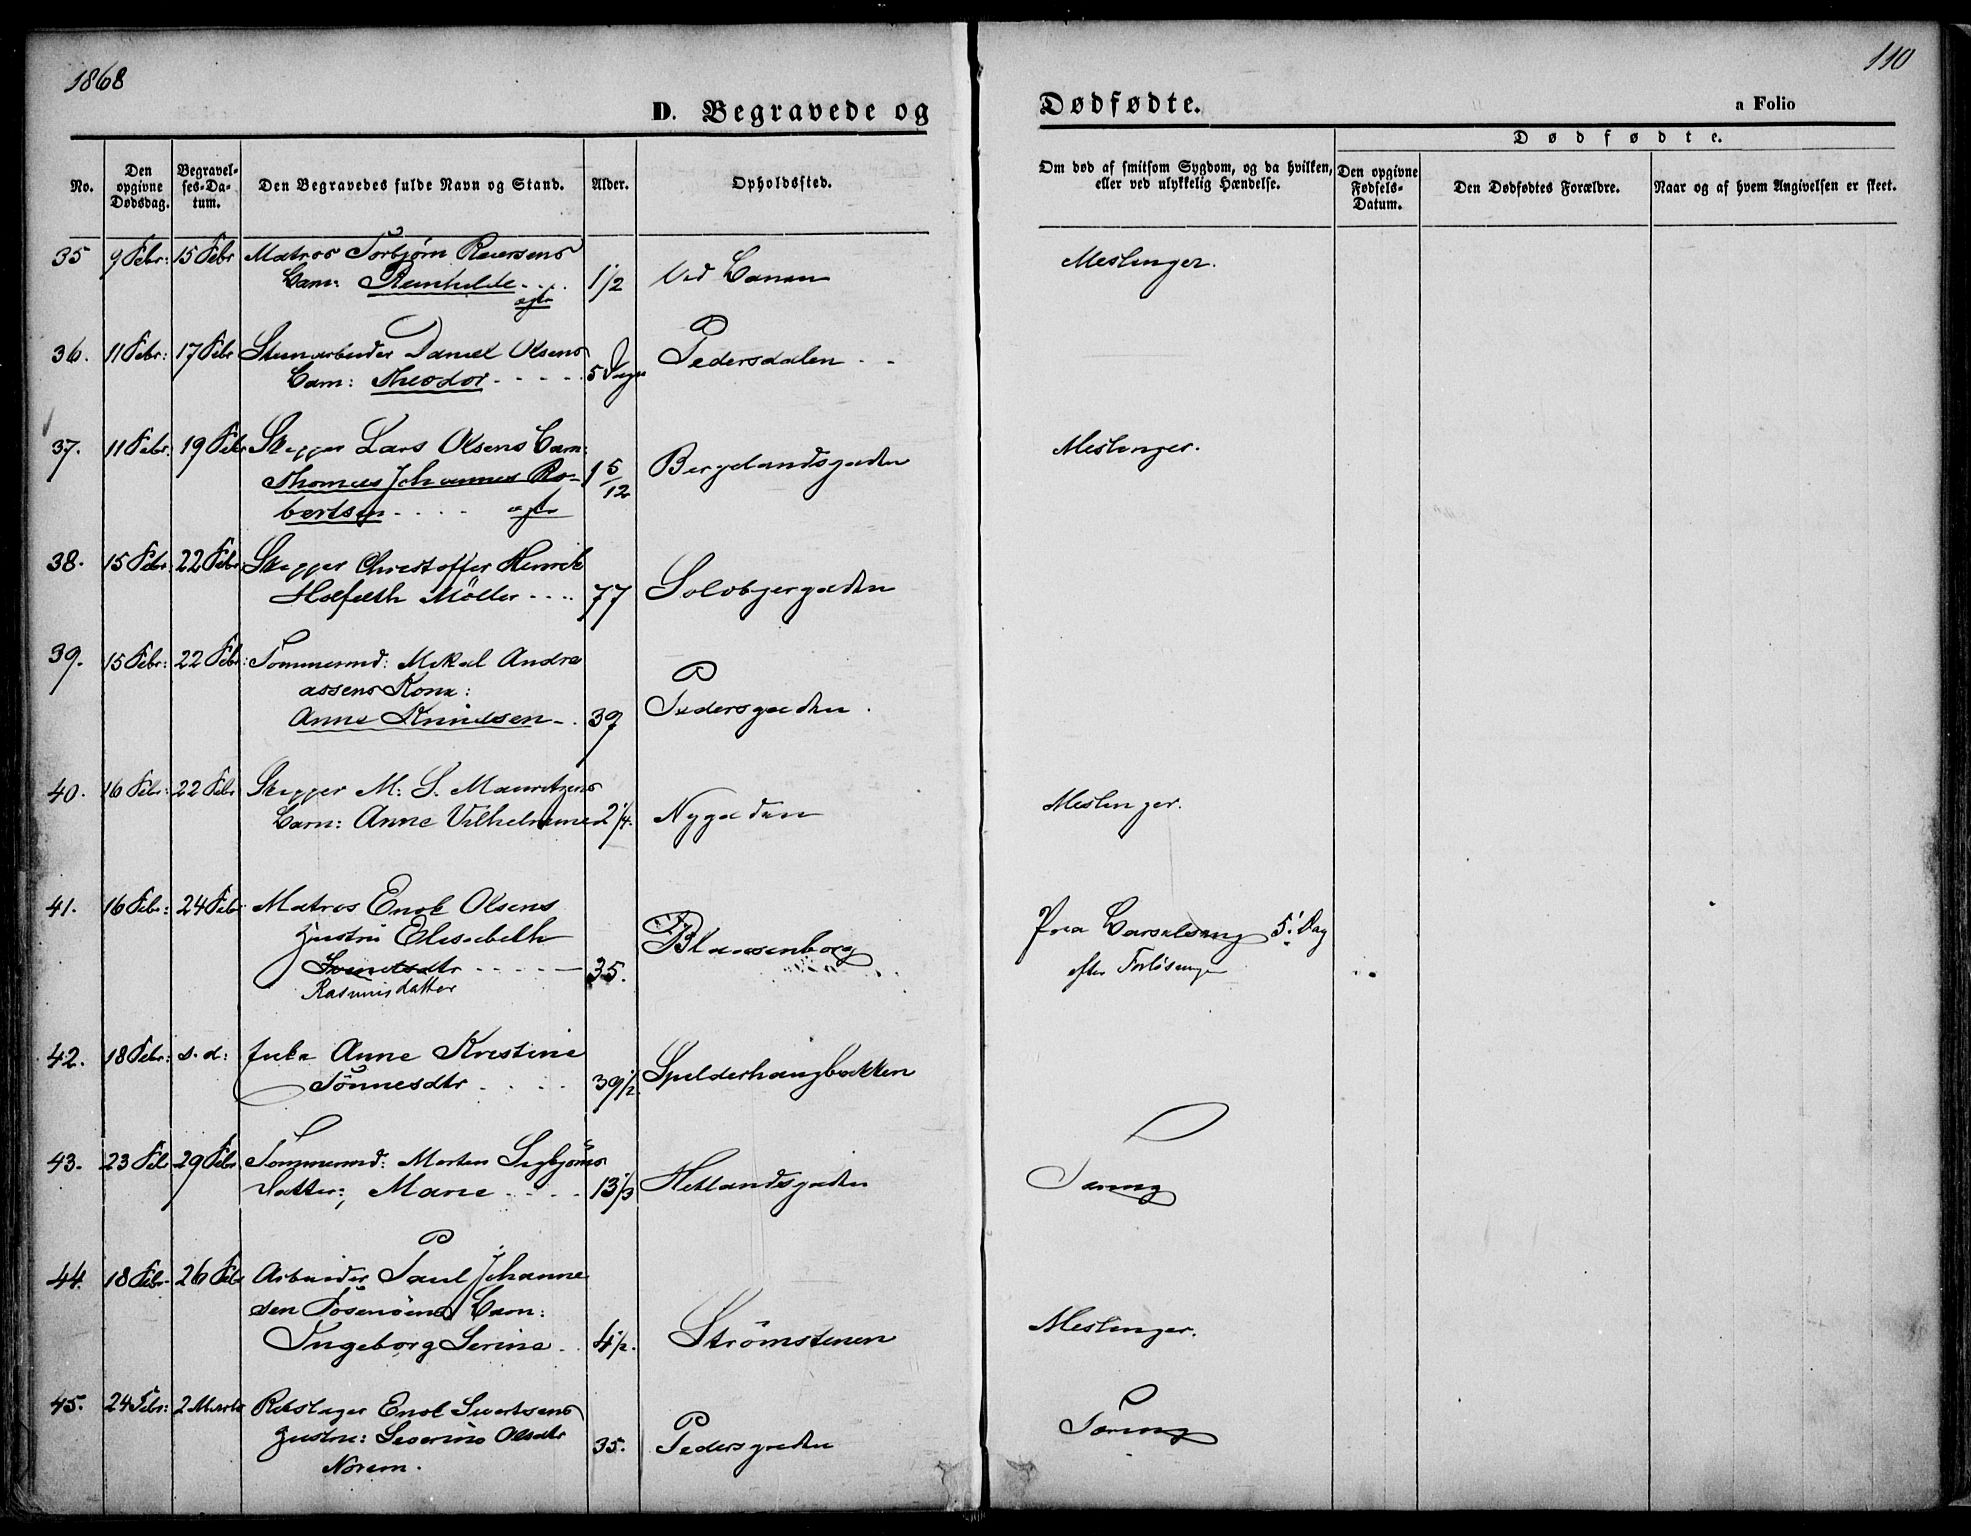 1868
110
D. Begravede og
Dødfødte.
a Folio
No.
Den opgivne Dødsdag.
Begravelses-Datum.
Den Begravedes fulde Navn og Stand.
Alder.
Opholdssted.
Om død af smitsom Sygdom, og da hvilken, eller ved ulykkelig Hændelse.
Dødfødte.
Den opgivne Fødsels-Datum.
Den Dødfødtes Forældre.
Naar og af hvem Angivelsen er skeet.
35 9 Febr: 15 Febr Matros Torbjørn Reiersens
Barn: Reinhilde . . . 1 1/2 Ved Banen Meslinger.
ægte
36. 11 Febr: 17 Febr Stenarbeider Daniel Olsens
Barn: Theodor - - - - - 5 Dage Pedersdalen - -
37. 11 Febr: 19 Febr Skipper Lars Olsens Barn:
Thomas Johannes Ro- 1 5/12 Bergelandsgaden Meslinger.
bertsen . . . . ægte
38. 15 Febr: 22 Febr: Skipper Christoffer Henrik
Møller . . . . 77 Solvbjergaden
39. 15 Febr: 22 Febr: Tømmermd: Mikal Andre
assens Kone:
Anne Knudsen - . 39 Pedersgaden.
40. 16 Febr: 22 Febr Skipper M: S. Mauritzens
Barn: Anne Vilhelmine 2 1/4. Nygaden Meslinger.
41. 16 Febr: 24 Febr Matros Enok Olsens
Hustru Elisabeth
Svendsdtr - - - - - 35. Blaasenborg Paa Barselseng 5' Dag
Rasmusdatter
efter Forløsningen
42. 18 Febr: s. d: Anne Kristine
Tønnesdtr . . . . 39 1/2. Spilderhaugbakken
43. 23 Febr 29 Febr Tømmermd: Morten Sigbjørns
Datter; Marie - - - - 13 1/3 Hetlandsgaden Tæring
44. 18 Febr. 26 Febr Arbeider Paul Johanne
sen Barn:
Ingeborg Serine . 4 1/2. Strømstenen Meslinger.
45. 24 Febr: 2 Marts Rebslager Enok Sivertsens
Hustru: Severine Olsdtr 35. Pedersgaden Tæring
Norem.